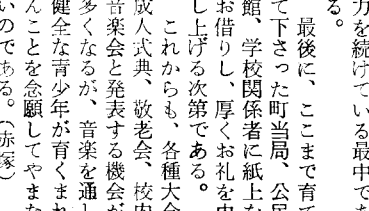 力を続けている最中であ
る。
最後に、ここまで育て
て下さった町当局、公民
館、学校関係者に紙上を
お借りし、厚くお礼を申
し上げる次第である。
これからも、各種大会
成人式典、敬老会、校内
音楽会と発表する機会が
多くなるが、音楽を通し
健全な青少年が育くまれ
んことを念願してやまな
いのである。(赤塚)